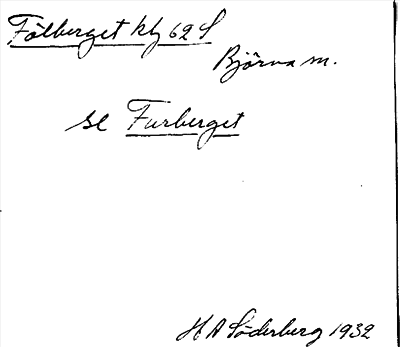 Fölberget kbg 62 S
Björna m.
se Furberget
H A Söderberg 1932